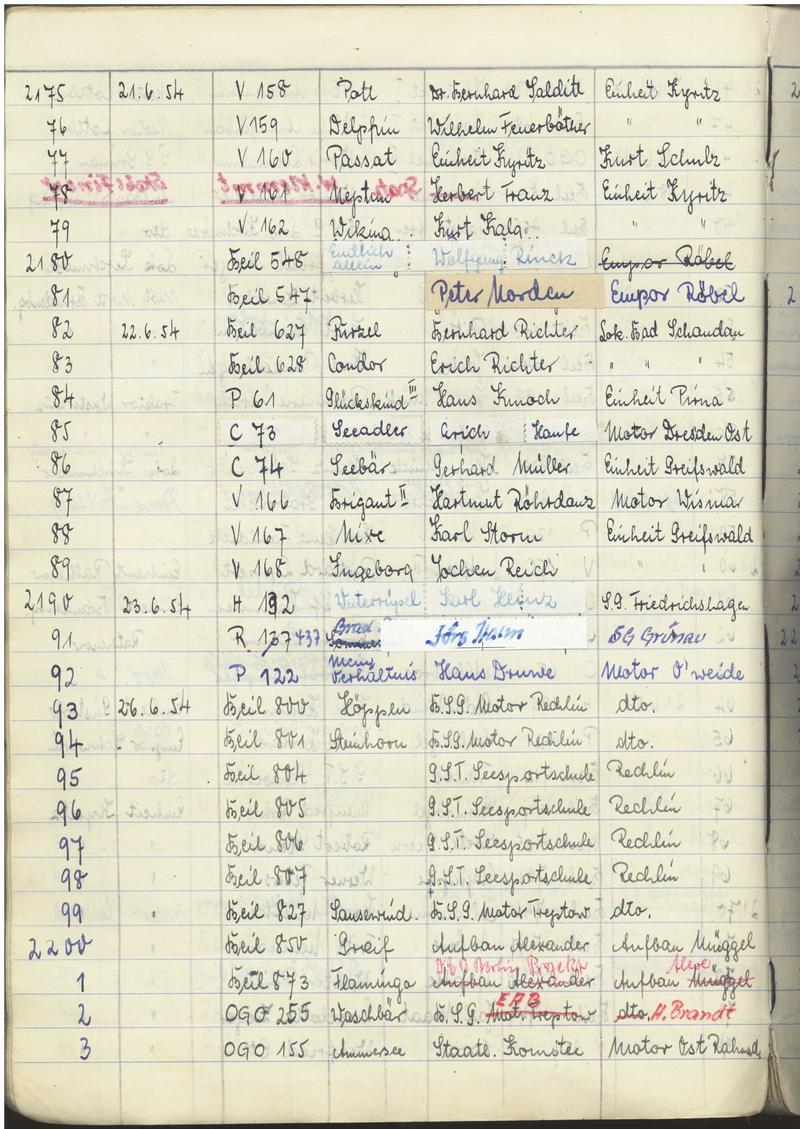 2175 21.6.54 V 158 Pott Dr. Bernhard Salditt Einheit Kyritz
76 V 159 Delphin Wilhelm Feuerböther " "
77 V 160 Passat Einheit Kyritz Kurt Schulz
78 V 161 Neptun Herbert Franz Einheit Kyritz
79 V 162 Wiking Kurt " "
2180 Beil 548 Endlich allein Wolfgang Rinck Empor Röbel
81 Beil 547 Peter Norden Empor Röbel
82 22.6.54 Beil 627 Bernhard Richter Lok. Bad Schandau
83 Beil 628 Condor Erich Richter " " "
84 P 61 Glückskind III Hans Knoch Einheit Pirna
85 C 73 Seeadler Erich Haufe Motor Dresden Ost
86 C 74 Seebär Gerhard Müller Einheit Greifswald
87 V 166 Brigant II Hartmut Röhrdanz Motor Wismar
88 V 167 Nixe Karl Storm Einheit Greifswald
89 V 168 Ingeborg Jochen Reich " "
2190 23.6.54 H 192 Karl Heinz S.G. Friedrichshagen
91 R 137 437 SG Grünau
92 P 122 Mein Verhältnis Hans Druwe Motor O'weide
93 26.6.54 Beil 800 Höppen B.S.G. Motor Rechlin dto.
94 " Beil 801 Steinhorn B.S.G. Motor Rechlin dto.
95 Beil 804 G.S.T. Seesportschule Rechlin
96 " Beil 805 G.S.T. Seesportschule Rechlin
97 Beil 806 G.S.T. Seesportschule Rechlin
98 " Beil 807 G.S.T. Seesportschule Rechlin
99 " Beil 827 Sausewind. B.S.G. Motor Treptow dto.
2200 " Beil 850 Greif Aufbau Alexander Aufbau Müggel
Berlin Projekt Alex
1 " Beil 873 Flamingo Aufbau Alexander Aufbau Müggel
EAB
2 " OGO 255 Waschbär B.S.G. Mot. Treptow dto. H. Brandt
3 OGO 155 Ammersee Staatl. Komitee Motor Ost